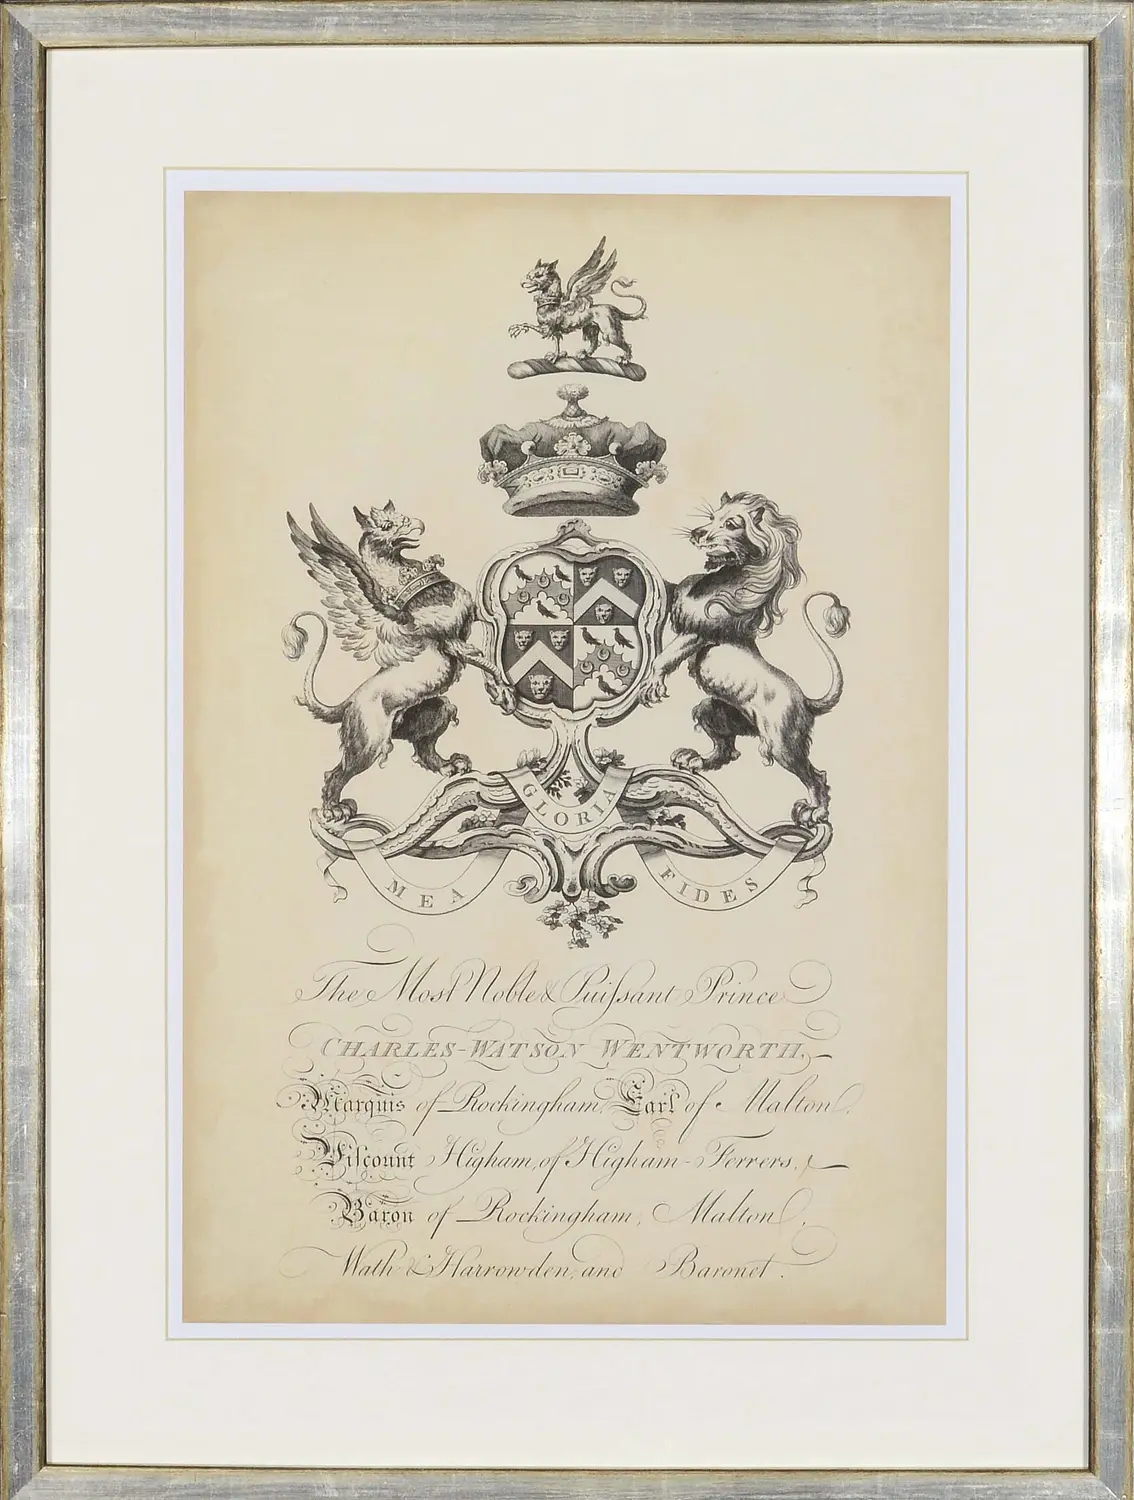 GLORIA
MEA FIDES
The Most Noble & Puiſsant Prince
CHARLES-WATSON WENTWORTH,
Marquis of Rockingham, Earl of Malton,
Viſcount Higham, of Higham-Ferrers,
Baron of Rockingham, Malton,
Wath & Harrowden, and Baronet.